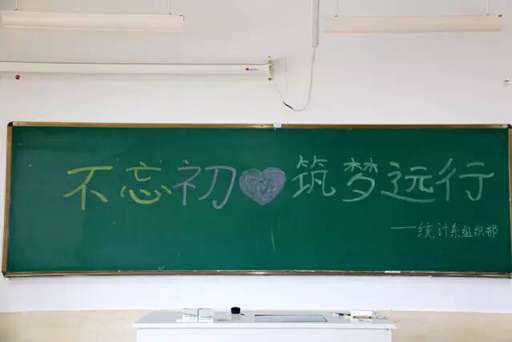 不忘初心 筑梦远行
——统计系组织部